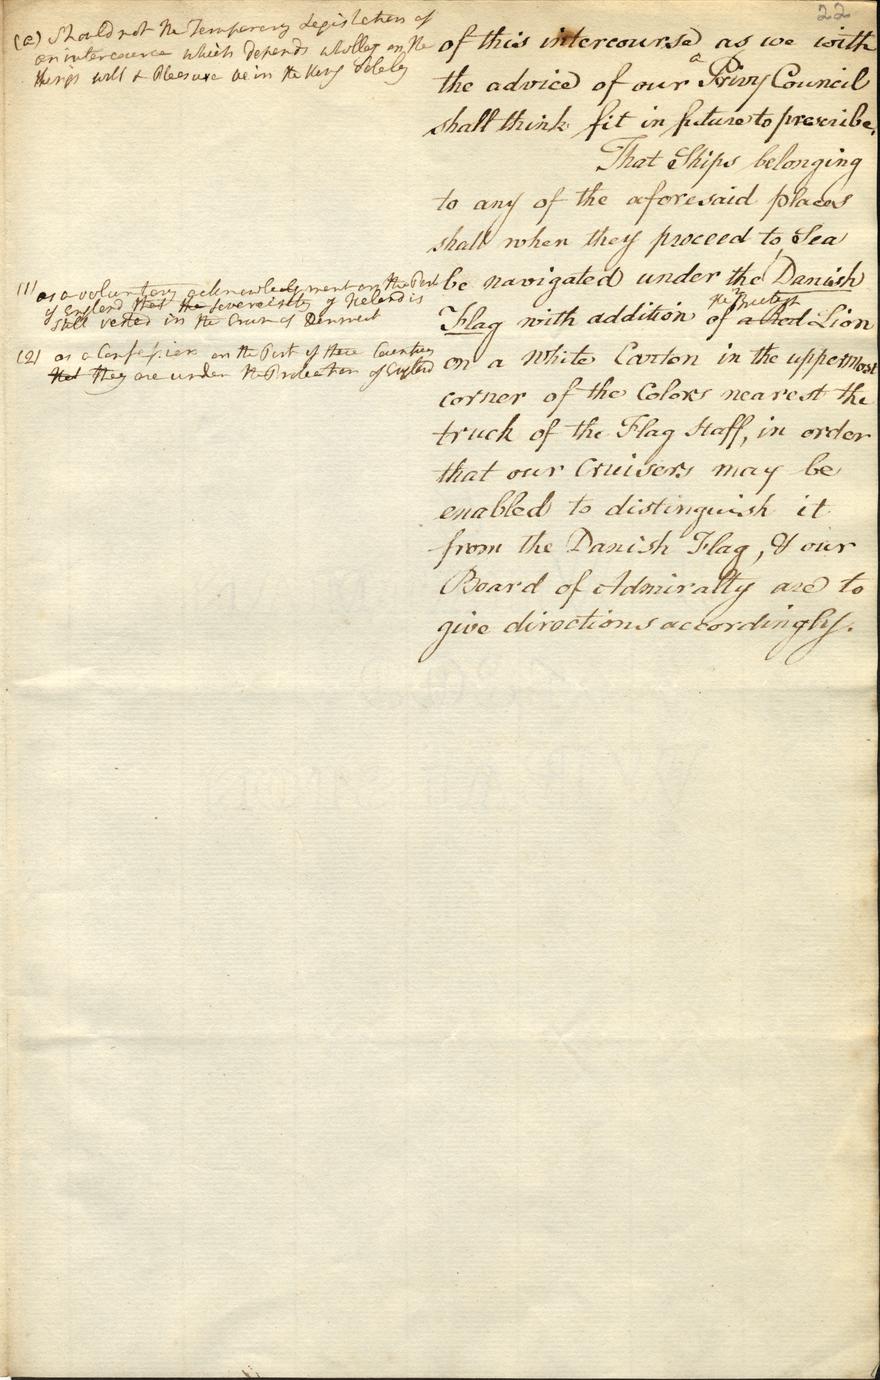 22
(a) Should not the Temporary Legislation of
an intercourse which depends wholley on the
Kings will & Pleasure be in the King Solely
(1) as a voluntary acknowledgment on the Part
of England that the sovereignty of Iceland is
still vested in the Crown of Denmark
(2) as a Confession on the Part of these Countries
that they are under the Protection of England
of this intercourse as we with
a
the advice of our Privy Council
shall think fit in future to prescribe.
That Ships belonging
to any of the aforesaid places
shall when they proceed to Sea
1
be navigated under the Danish
2
the British
Flag with addition of a Red Lion
on a White Canton in the uppermost
corner of the Colors nearest the
truck of the Flag Staff, in order
that our Cruisers may be
enabled to distinguish it
from the Danish Flag, & our
Board of Admiralty are to
give directions accordingly.